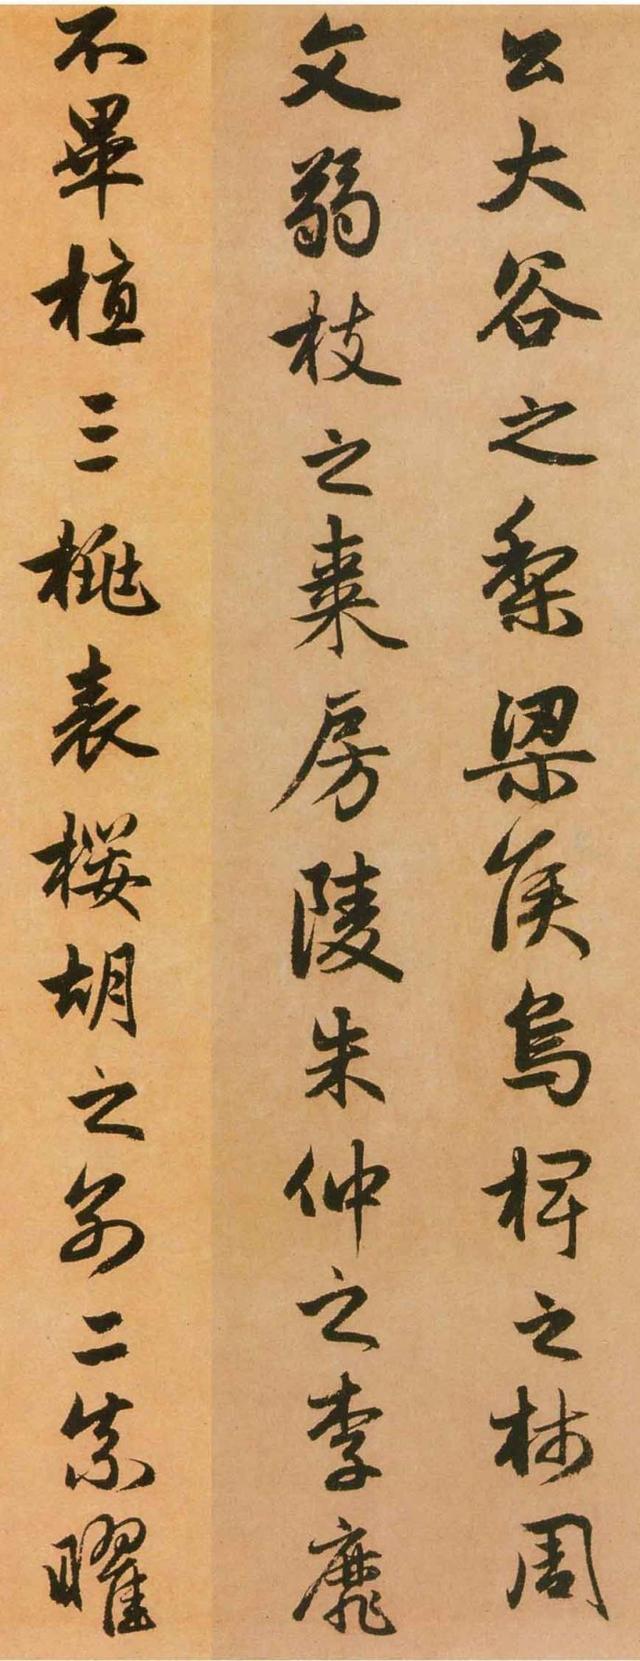 公大谷之梨梁侯烏椑之柿周
文弱枝之棗房陵朱仲之李靡
不畢植三桃表櫻胡之別二柰曜